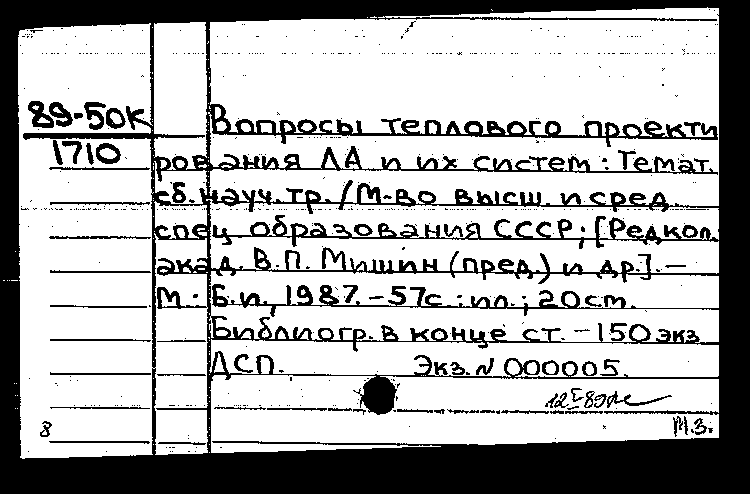 89-50К
1710
Вопросы теплового проекти
рования ЛА и их систем : Темат.
сб. науч. тр. / М-во высш. и сред.
спец образования СССР; [Редкол.
акад. В.П. Мишин (пред.) и др.]. –
М : Б.и., 1987. – 57с. : ил. ; 20см.
Библиогр. в конце ст. – 150 экз
ДСП. Экз. N 000005.
8 М.З.